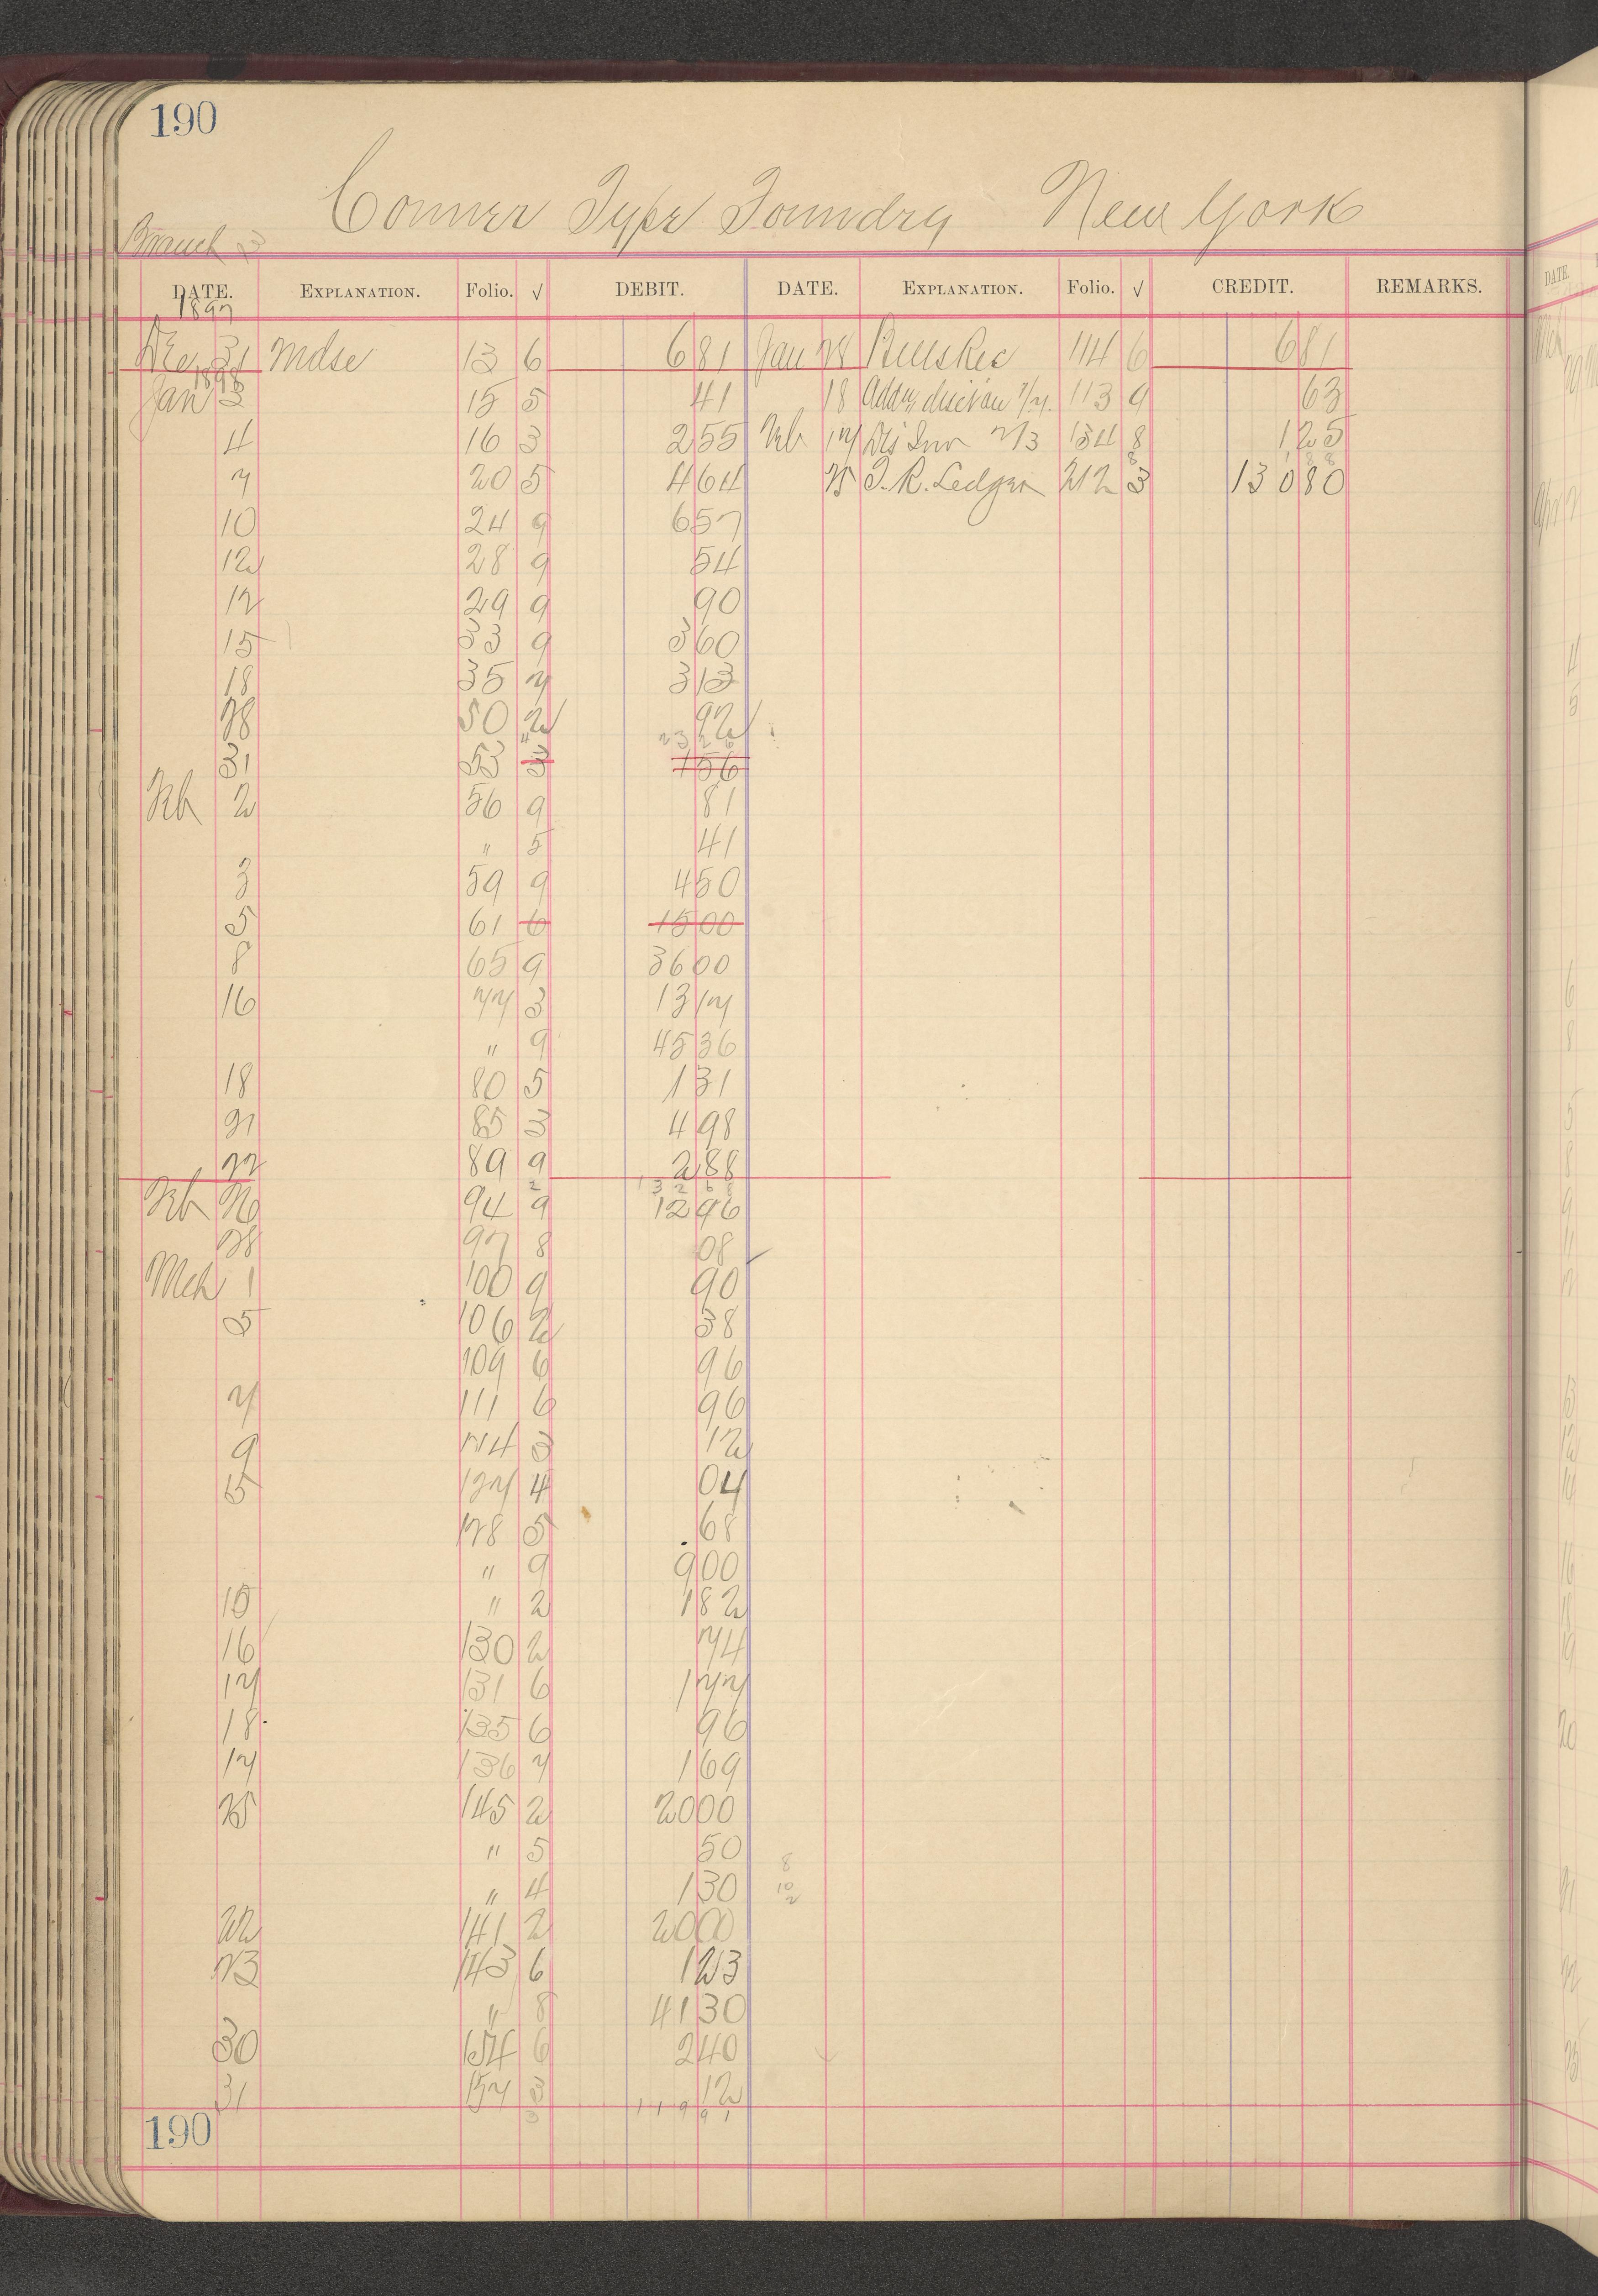 190
Conner Type Foundry New York
Branch
DATE. EXPLANATION. Folio. √ DEBIT. DATE. EXPLANATION. Folio. √ CREDIT. REMARKS.
1897
Dec 31 Mdse 13 6 6 81 Jan 28 Bills Rec 114 6 6 81
1898
Jan 3 15 5 41 18 113 9 63
4 16 3 2 55 Feb 17 Dis Inv 2/3 134 8 1 25
7 20 5 4 64 25 T. R. Ledger 212 3 130 80
10 24 9 6 57
12 28 9 54
12 29 9 90
15 33 9 3 60
18 35 7 3 13
28 50 2 92
23 26
31 53 3 7 56
Feb 2 56 9 81
" 5 41
3 59 9 4 50
5 61 6 15 00
8 65 9 36 00
16 77 3 13 17
" 9 45 36
18 80 5 1 31
21 85 3 4 98
22 89 9 2 88
Feb 26 94 9 12 96
28 97 8 08
Mch 1 100 9 90
5 106 2 38
109 6 96
7 111 6 96
9 114 3 12
15 127 4 04
128 5 68
" 9 9 00
15 " 2 1 82
16 130 2 74
17 131 6 1 77
18 135 6 96
17 136 7 1 69
25 145 2 20 00
" 5 50
8
" 4 1 30
10
2
22 141 2 20 00
23 143 6 1 23
" 8 41 30
30 154 6 2 40
31 157 3 12
119 91
190